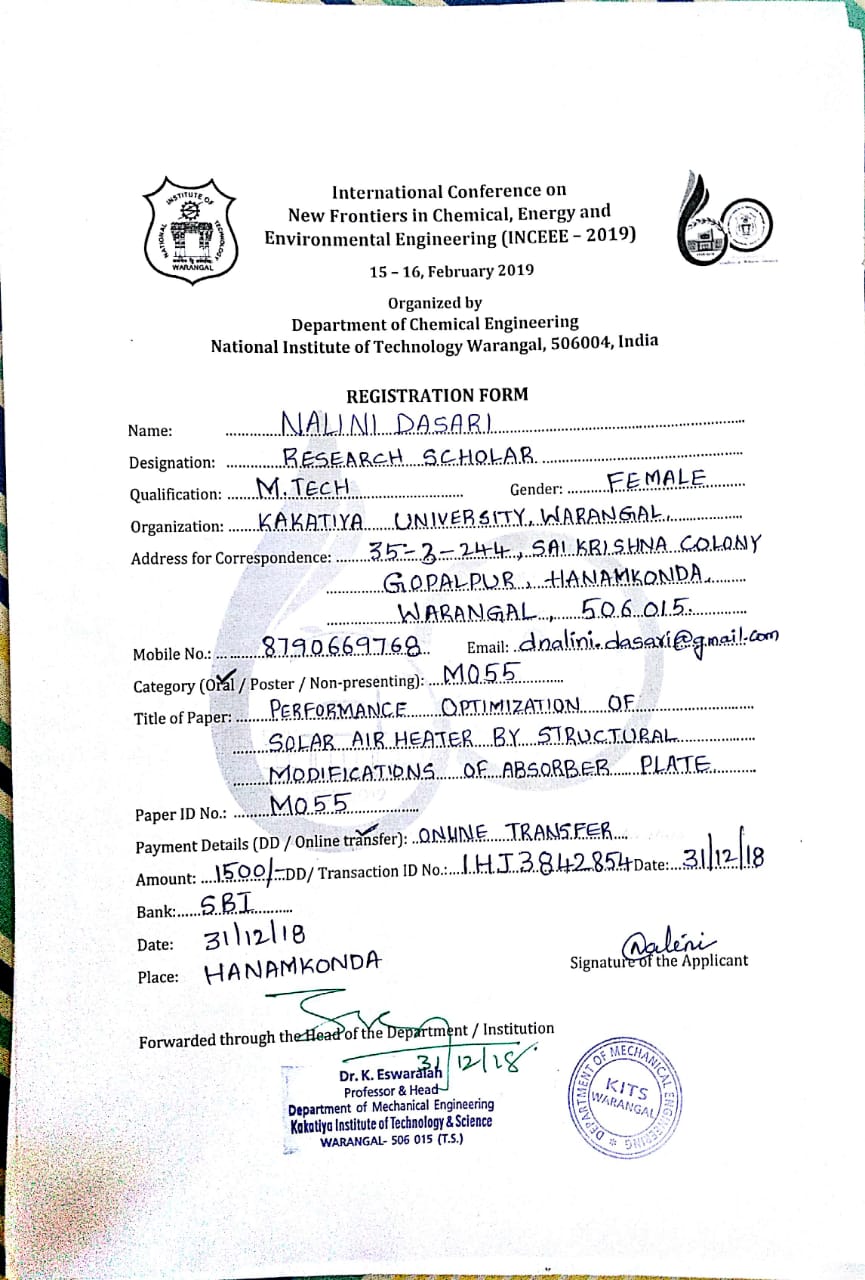 INSTITUTE OF
NATIONAL
TECHNOLOGY
WARANGAL
International Conference on
New Frontiers in Chemical, Energy and
Environmental Engineering (INCEEE – 2019)
15 – 16, February 2019
Organized by
Department of Chemical Engineering
National Institute of Technology Warangal, 506004, India
REGISTRATION FORM
Name: NALINI DASARI
Designation: RESEARCH SCHOLAR
Qualification: M.TECH Gender: FEMALE
Organization: KAKATIYA UNIVERSITY, WARANGAL,
Address for Correspondence: 35-3-244, SAI KRISHNA COLONY
GOPALPUR, HANAMKONDA,
WARANGAL, 506015.
Mobile No.: 8790669768 Email: dnalini.dasari@gmail.com
Category (Oral / Poster / Non-presenting): M055
Title of Paper: PERFORMANCE OPTIMIZATION OF
SOLAR AIR HEATER BY STRUCTURAL
MODIFICATIONS OF ABSORBER PLATE
Paper ID No.: M055
Payment Details (DD / Online transfer): ONLINE TRANSFER
Amount: 1500/- DD/ Transaction ID No.: IHJ3842854 Date: 31/12/18
Bank: SBI
Date: 31/12/18
Place: HANAMKONDA
Nalini
Signature of the Applicant
Forwarded through the Head of the Department / Institution
31/12/18
Dr. K. Eswaraiah
Professor & Head
Department of Mechanical Engineering
Kakatiya Institute of Technology & Science
WARANGAL- 506 015 (T.S.)
DEPARTMENT OF MECHANICAL ENGINEERING
KITS
WARANGAL